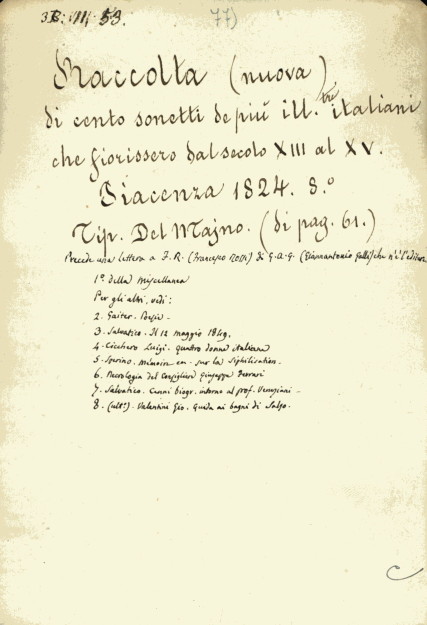 3B. III. 53.
77)
Raccolta (nuova)
di cento sonetti de più ill. tri italiani
che fiorissero dal secolo XIII al XV.
Piacenza 1824. 8.º
Tip. Del Majno. (di pag. 61.)
Precede una lettera a F. R. (Francesco Rossi) di G. A. G. (Giannantonio Galli) che n'è l'editore
1º della Miscellanea
Per gli altri, vedi:
2. Gaiter. Poesie -
3. Salvatico. Il 12 maggio 1849.
4. Cicchero Luigi. Quattro donne italiane
5. Sperino. Mémoire sur la Syphilisation.
6. Necrologia del Consigliere Giuseppe Ferrari
7. Salvatico. Cenni biogr. intorno al prof. -
8. (ultº) Valentini Geo. Guida ai bagni di